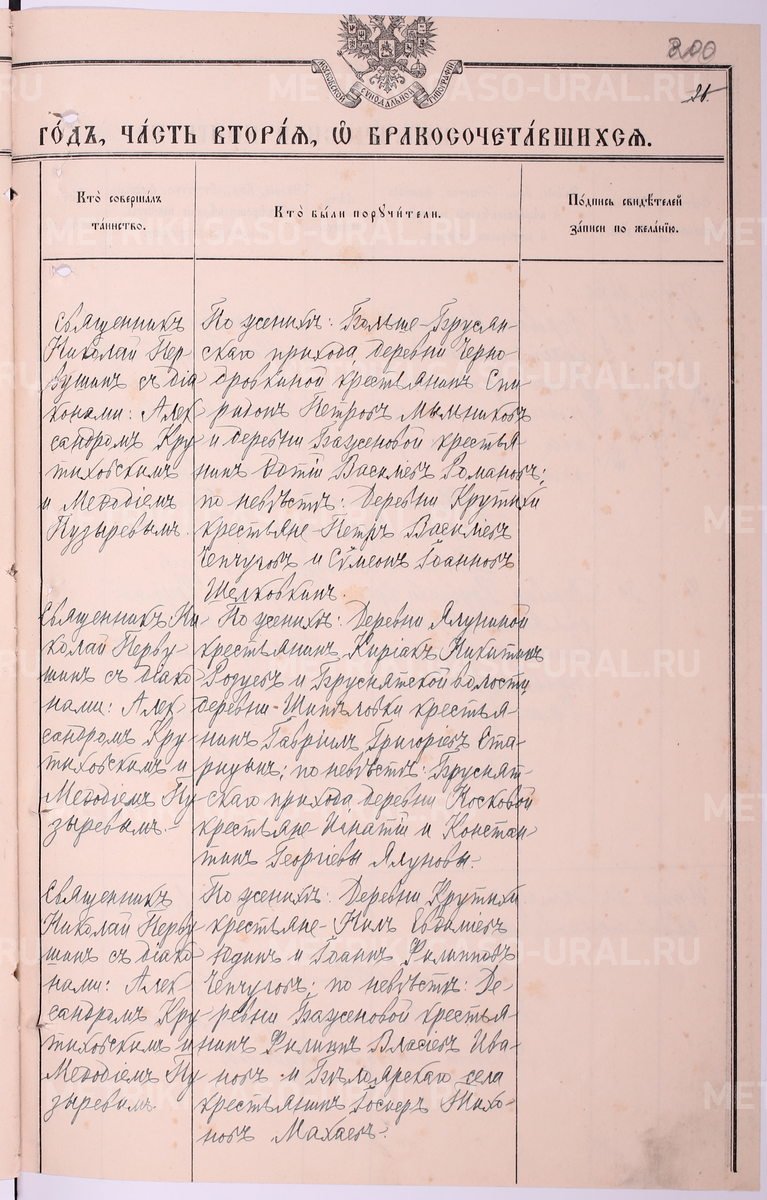 200
26.
МОСКОВСКОЙ СѴНОДАЛЬНОЙ ТИПОГРАФІИ
ГО́ДЪ, ЧА́СТЬ ВТОРА́Я, Ѿ БРАКОСОЧЕТА́ВШИХСЯ.
Кто̀ соверша́лъ
та́инство.
Кто̀ бы́ли порꙋчи́тели.
По́дпись свидѣ́телей
за́писи по жела́нію.
Священникъ
Николай Пер-
вушинъ съ діа
конами: Алек-
сандромъ Кру
тиховскимъ
и Меѳодіемъ
Пузыревымъ.
По женихѣ: Больше-Брусян-
скаго прихода, деревни Черно
бровкиной крестьянинъ Спи-
ридонъ Петровъ Мыльниковъ
и деревни Баженовой крестья
нинъ Фотій Василіевъ Романовъ;
по невѣстѣ: Деревни Крутихи
крестьяне Петръ Василіевъ
Чепчуговъ и Сѵмеонъ Іоанновъ
Шелковкинъ.
Священникъ Ни
колай Перву
шинъ съ діако
нами: Алек-
сандромъ Кру-
тиховскимъ и
Меѳодіемъ Пу
зыревымъ.-
По женихѣ: Деревни Ялуниной
крестьянинъ Киріакъ Никитинъ
и Бруснятской волости
деревни крестья-
нинъ Гавріилъ Григоріевъ Ста-
рицынъ; по невѣстѣ: Бруснят-
скаго прихода, деревни Косковой
крестьяне Игнатій и Констан-
тинъ Георгіевы Ялуновы.
Священникъ
Николай Перву
шинъ съ діако-
нами: Алек-
сандромъ Кру-
тиховскимъ и
Меѳодіемъ Пу
зыревымъ.
По женихѣ: Деревни Крутихи
крестьяне- Нилъ Евѳиміевъ
Юдинъ и Іоаннъ Филипповъ
Чепчуговъ; по невѣстѣ: Де-
ревни Баженовой крестья-
нинъ Филиппъ Власіевъ Ива-
новъ и Бѣлоярскаго села
крестьянинъ Тихо-
новъ Махаевъ.
METRIKI.GASO-URAL.RU